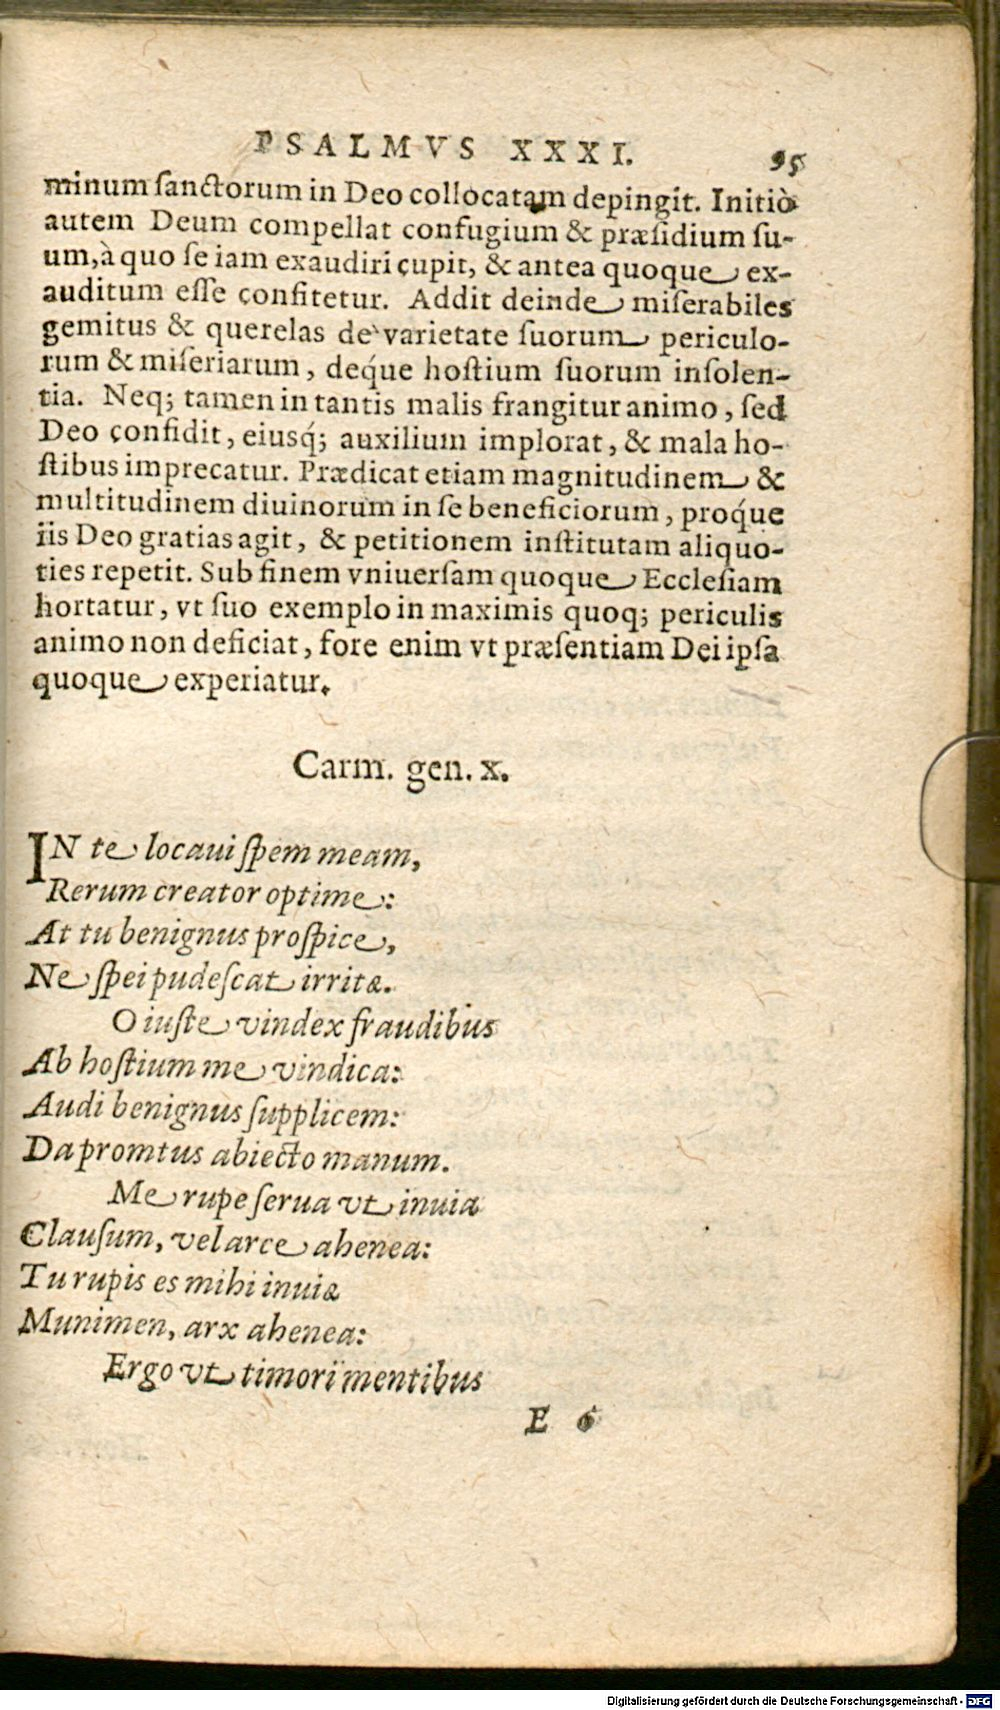 PSALMVS XXXI. 95
minum sanctorum in Deo collocatam depingit. Initiò
autem Deum compellat confugium & præsidium su-
um, à quo se iam exaudiri cupit, & antea quoque ex-
auditum esse confitetur. Addit deinde miserabiles
gemitus & querelas de varietate suorum periculo-
rum & miseriarum, deq́ue hostium suorum insolen-
tia. Neq; tamen in tantis malis frangitur animo, sed
Deo confidit, eiusq́; auxilium implorat, & mala ho-
stibus imprecatur. Prædicat etiam magnitudinem &
multitudinem diuinorum in se beneficiorum, proq́ue
iis Deo gratias agit, & petitionem institutam aliquo-
ties repetit. Sub finem vniuersam quoque Ecclesiam
hortatur, vt suo exemplo in maximis quoq; periculis
animo non deficiat, fore enim vt præsentiam Dei ipsa
quoque experiatur.
Carm. gen. x.
IN te locaui spem meam,
Rerum creator optime:
At tu benignus prospice,
Ne spei pudescat irritæ.
O iuste vindex fraudibus
Ab hostium me vindica:
Audi benignus supplicem:
Da promtus abiecto manum.
Me rupe serua vt inuia
Clausum, vel arce ahenea:
Tu rupis es mihi inuiæ
Munimen, arx ahenea:
Ergo vt timori mentibus
E 6
Digitalisierung gefördert durch die Deutsche Forschungsgemeinschaft - DFG